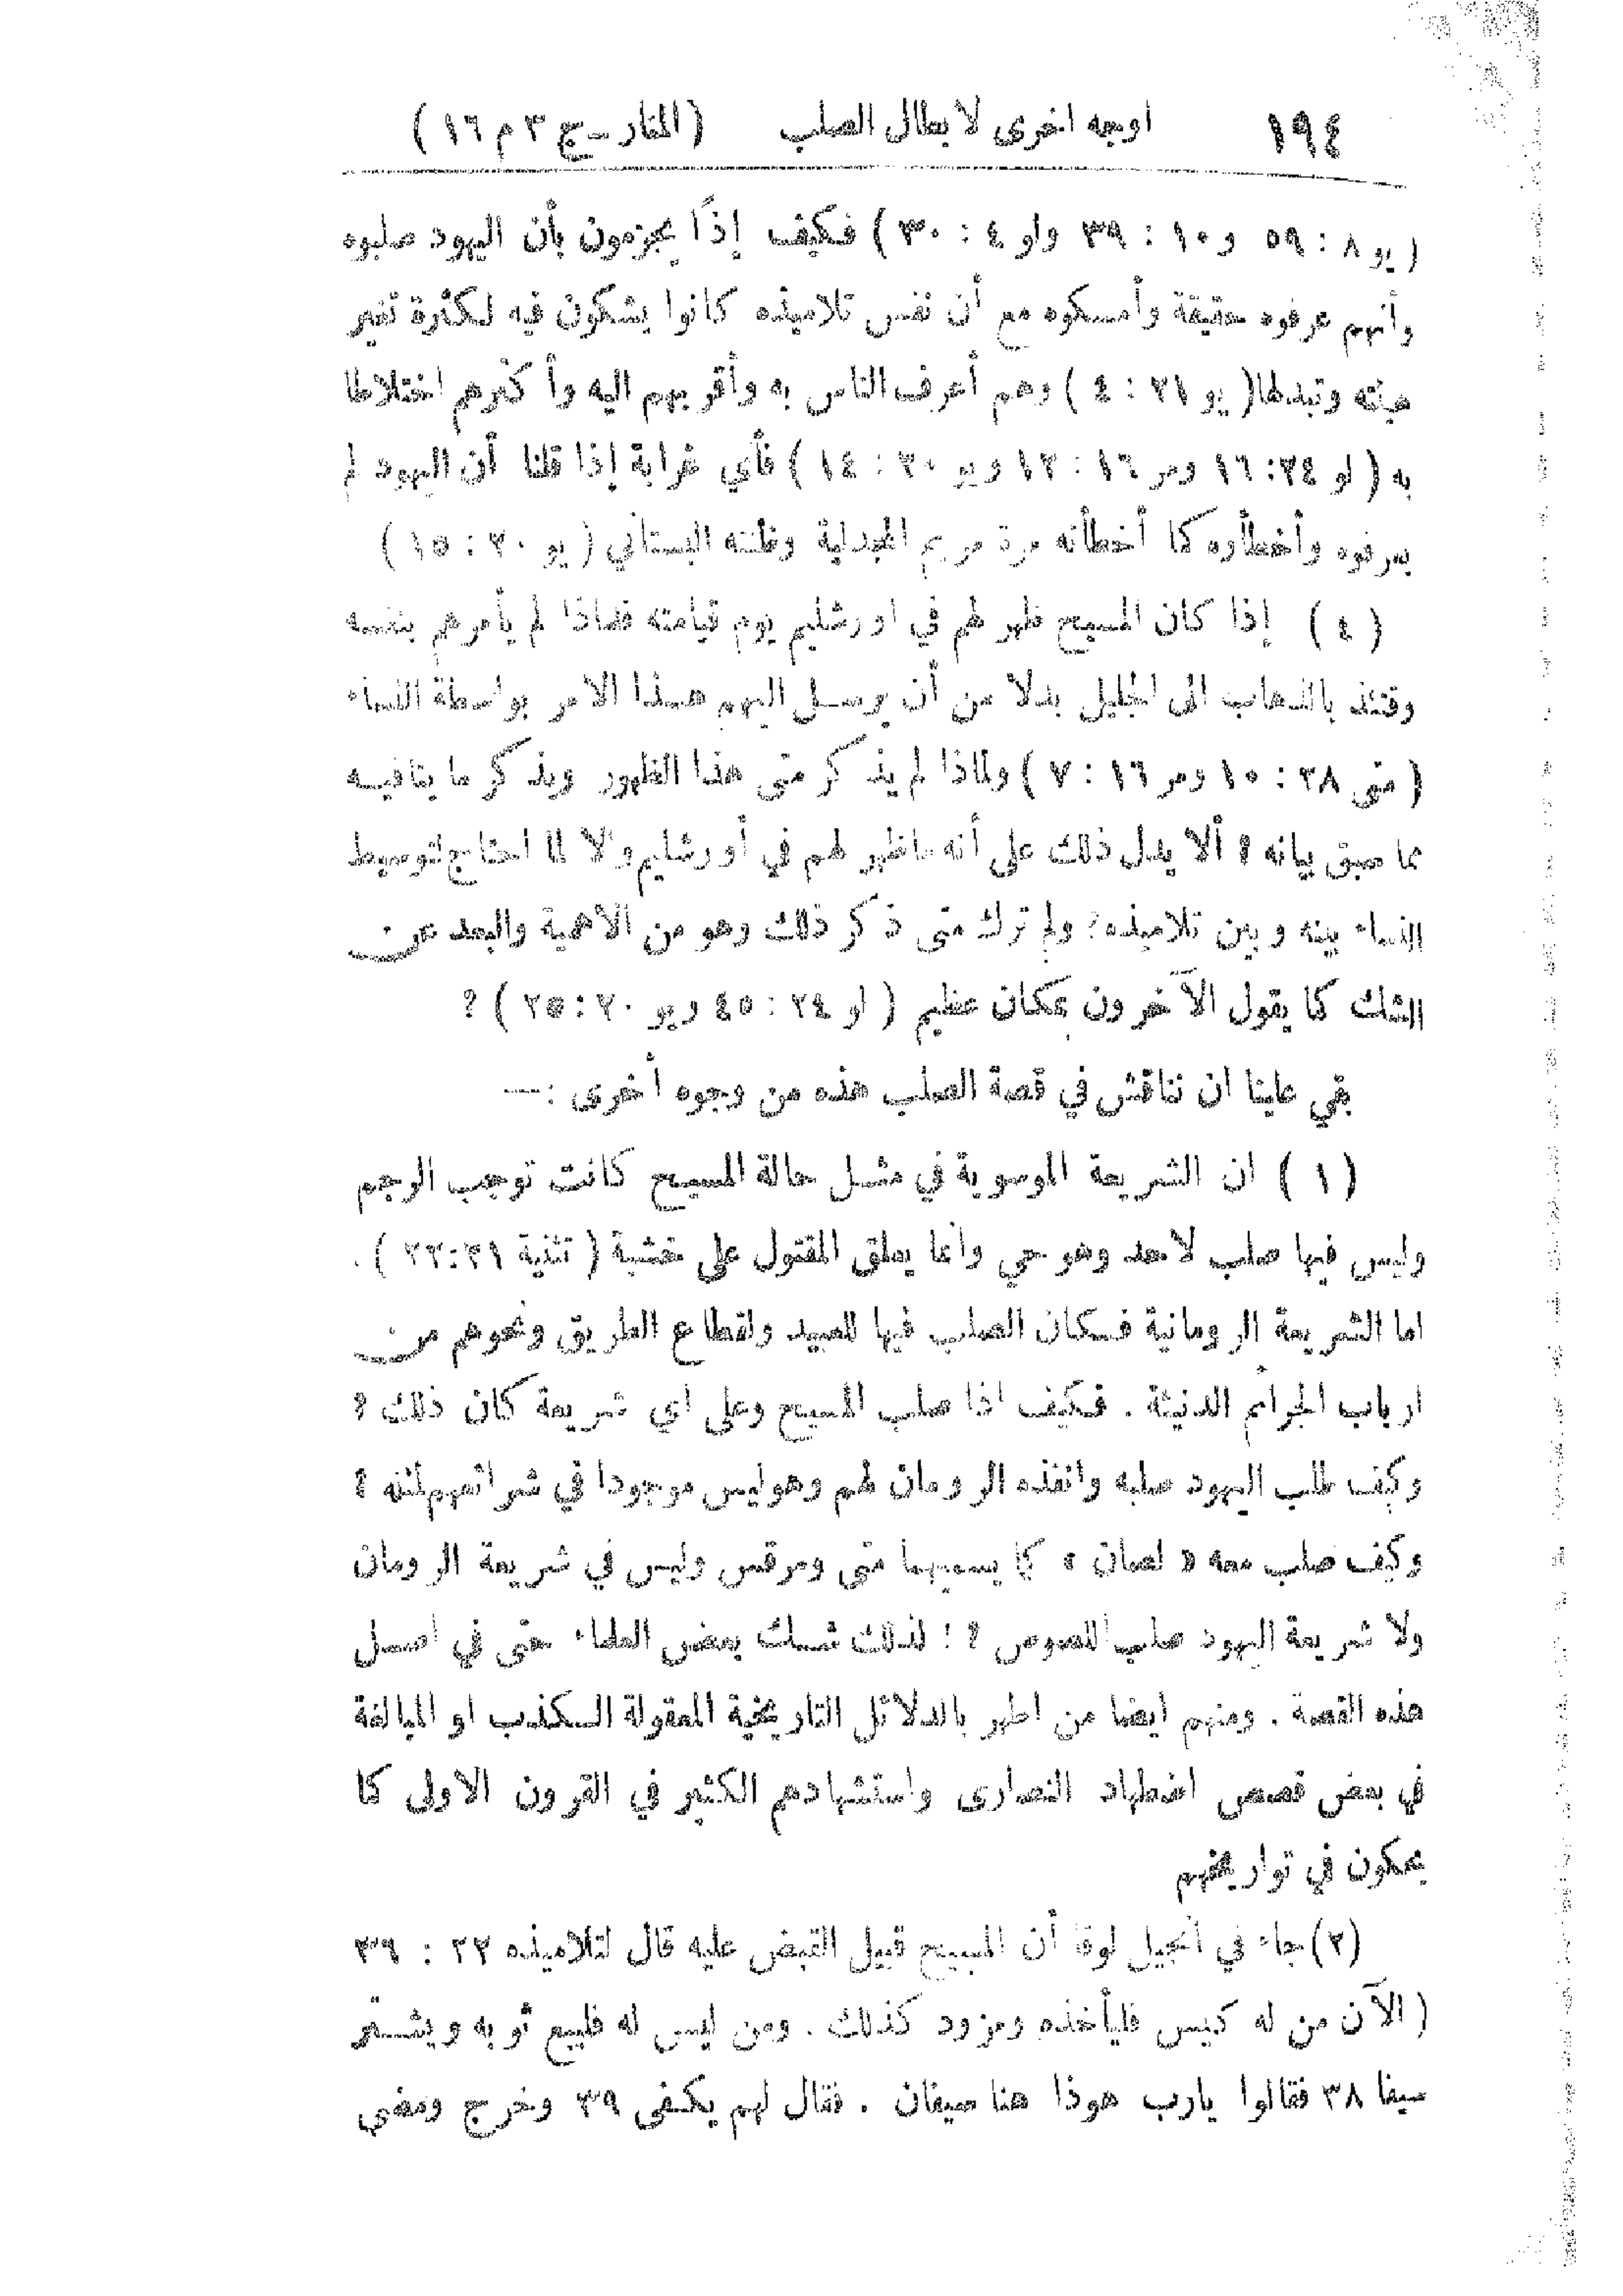 ١٩٤ اوجه اخرى لابطال الصلب (المنار ــ ج ٣ م ١٦)
(يو ٨: ٥٩ و ١٠: ٣٩ ولو ٤: ٣٠) فكيف إذًا يجزمون بأن اليهود صلبوه
وأنهم عرفوه حقيقة وأمسكوه مع أن نفس تلاميذه كانوا يشكون فيه لكثرة تغير
هيئته وتبدلها (يو ٢١: ٤) وهم أعرف الناس به وأقربهم اليه وأكثرهم اختلاطا
به (لو ٢٤: ١٦ ومر ١٦: ١٢ ويو ٢٠: ١٤) فأي غرابة إذا قلنا أن اليهود لم
يعرفوه وأخطأوه كما أخطأته مرة مريم المجدلية وظنته البستاني (يو ٢٠: ١٥)
(٤) إذا كان المسيح ظهر لهم في اورشليم يوم قيامته فلماذا لم يأمرهم بنفسه
وقتئذ بالذهاب الى الجليل بدلا من أن يرسل اليهم هذا الامر بواسطة النساء
(متى ٢٨: ١٠ ومر ١٦: ٧) ولماذا لم يذكر متى هذا الظهور ويذكر ما ينافيه
مما سبق بيانه؟ ألا يدل ذلك على أنه ماظهر لهم في أورشليم والا لما احتاج لتوسيط
النساء بينه وبين تلاميذه؟ ولم ترك متى ذكر ذلك وهو من الأهمية والبعد عن
الشك كما يقول الآخرون بمكان عظيم (لو ٢٤: ٤٥ ويو ٢٠: ٢٥)؟
بقي علينا ان نناقش في قصة الصلب هذه من وجوه أخرى :—
(١) ان الشريعة الموسوية في مثل حالة المسيح كانت توجب الرجم
وليس فيها صلب لاحد وهو حي وانما يعلق المقتول على خشبة (تثنية ٢١:٢٢).
اما الشريعة الرومانية فكان الصلب فيها للعبيد ولقطاع الطريق ونحوهم من
ارباب الجرائم الدنيئة. فكيف اذا صلب المسيح وعلى اي شريعة كان ذلك؟
وكيف طلب اليهود صلبه وانفذه الرومان لهم وهو ليس موجودا في شرائعهم لمثله؟
وكيف صلب معه «لصان» كما يسميهما متى ومرقس وليس في شريعة الرومان
ولا شريعة اليهود صلب اللصوص؟! لذلك شك بعض العلماء حتى في اصل
هذه القصة. ومنهم ايضا من اظهر بالدلائل التاريخية المعقولة الكذب او المبالغة
في بعض قصص اضطهاد النصارى واستشهادهم الكثير في القرون الاولى كما
يحكون في تواريخهم
(٢) جاء في انجيل لوقا أن المسيح قبيل القبض عليه قال لتلاميذه ٢٢: ٣٦
(الآن من له كيس فليأخذه ومزود كذلك. ومن ليس له فليبع ثوبه ويشتر
سيفا ٣٨ فقالوا يارب هوذا هنا سيفان. فقال لهم يكفى ٣٩ وخرج ومضى